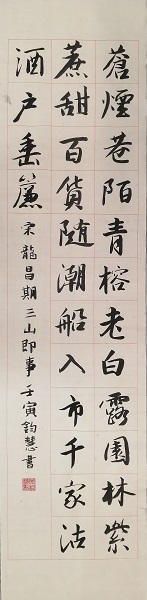 蒼煙巷陌青榕老白露園林紫
蔗甜百貨随潮船入市千家沽
酒戶垂簾宋龍昌期三山即事壬寅鈞慧書